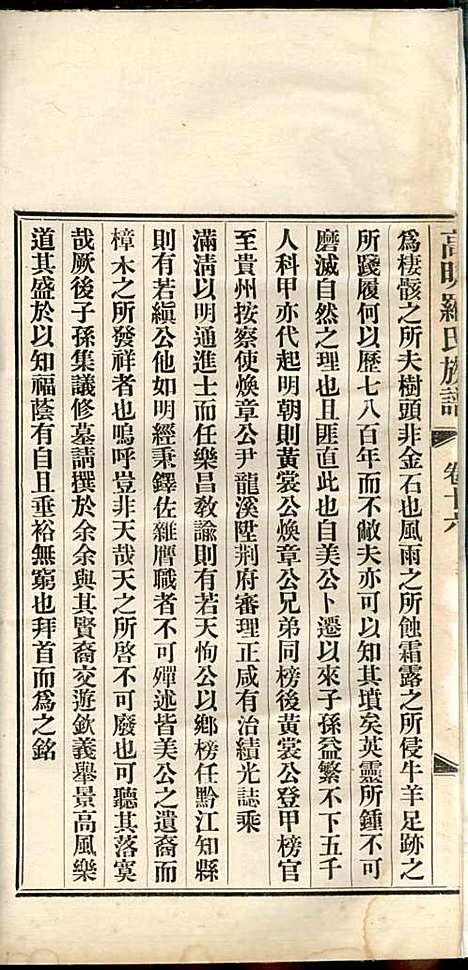 高明羅氏族譜 卷十六
為棲骸之所夫樹頭非金石也風雨之所蝕霜露之所侵牛羊足跡之
所踐履何以歷七八百年而不敝夫亦可以知其墳矣英靈所鍾不可
磨滅自然之理也且匪直此也自美公卜遷以來子孫益繁不下五千
人科甲亦代起明朝則黃裳公煥章公兄弟同榜後黃裳公登甲榜官
至貴州按察使煥章公尹龍溪陞荆府審理正咸有治績光誌乘
滿清以明通進士而任樂昌教諭則有若天恂公以鄉榜任黔江知縣
則有若縝公他如明經秉鐸佐雜膺職者不可殫述皆美公之遺裔而
樟木之所發祥者也嗚呼豈非天哉天之所啓不可廢也可聽其落寞
哉厥後子孫集議修墓請撰於余余與其賢裔交遊欽義舉景高風樂
道其盛於以知福蔭有自且垂裕無窮也拜首而為之銘